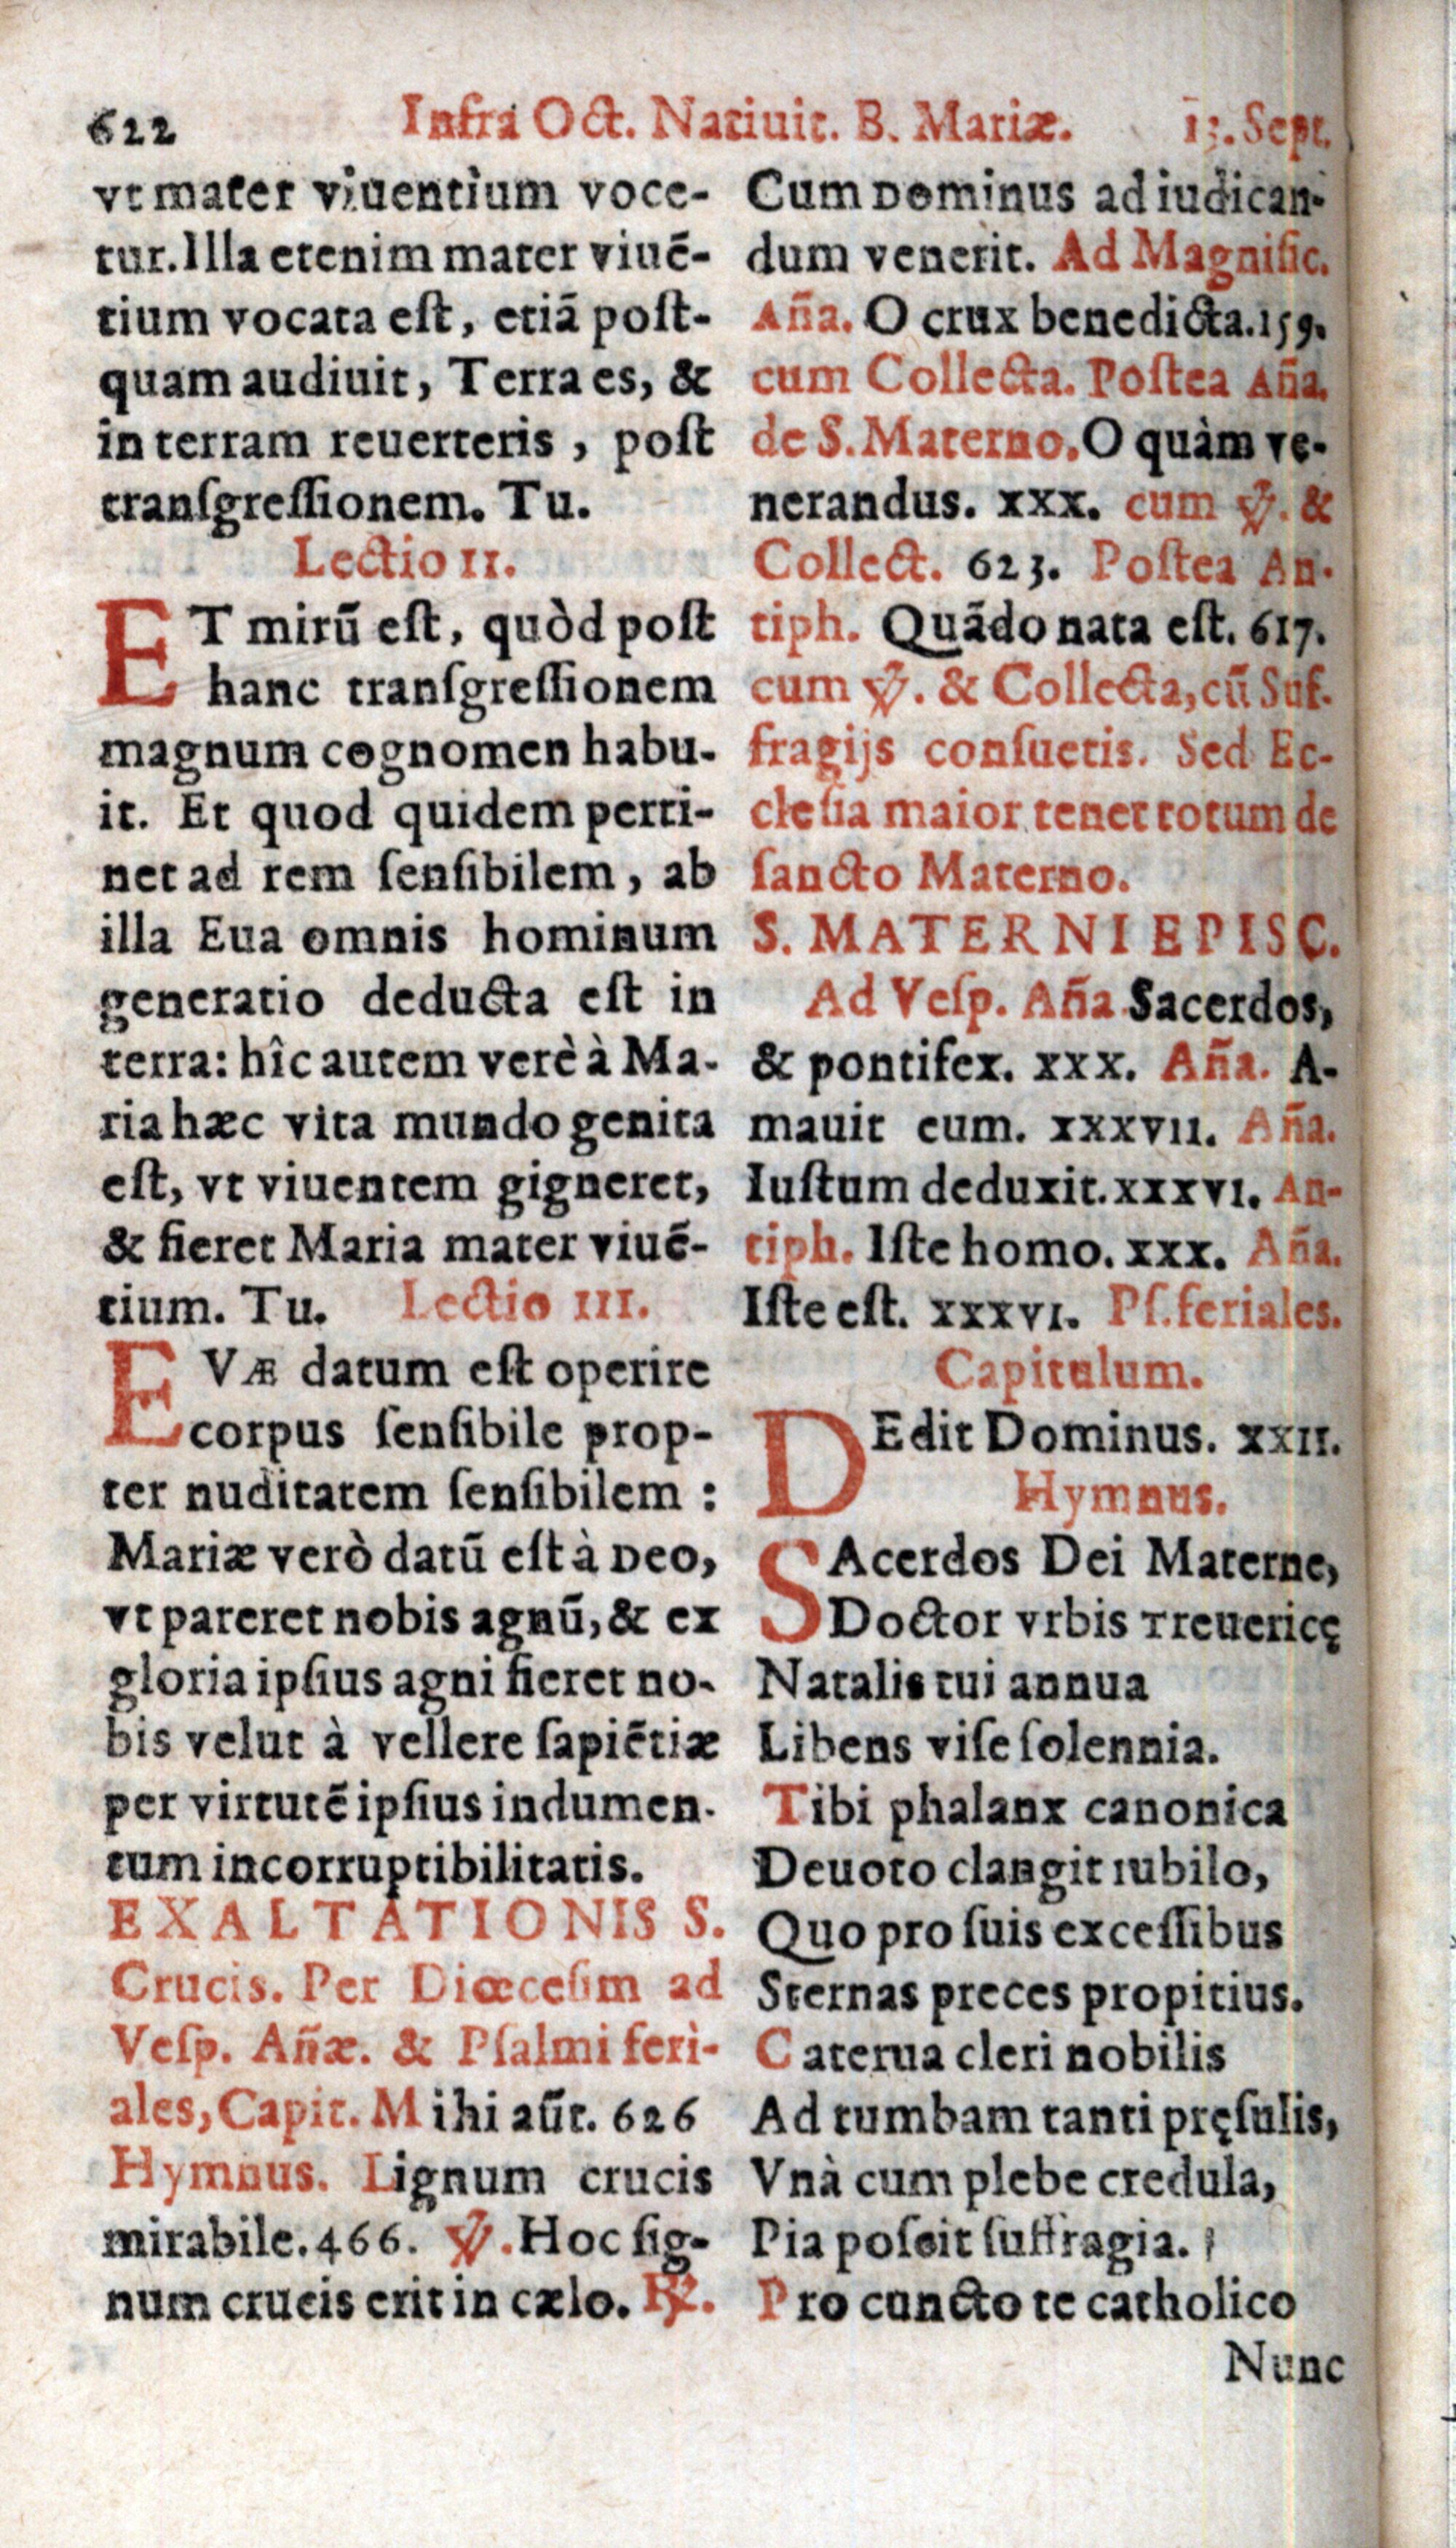 622 Infra Oct. Natiuit. B. Mariæ. 13. Sept.
vt mater viuentium voce-
tur. Illa etenim mater viuē-
tium vocata eſt, etiā poſt-
quam audiuit, Terra es, &
in terram reuerteris, poſt
tranſgreſſionem. Tu.
Lectio II.
ET mirū eſt, quòd poſt
hanc tranſgreſſionem
magnum cognomen habu-
it. Et quod quidem perti-
net ad rem ſenſibilem, ab
illa Eua omnis hominum
generatio deducta eſt in
terra: hîc autem verè à Ma-
ria hæc vita mundo genita
eſt, vt viuentem gigneret,
& fieret Maria mater viuē-
tium. Tu. Lectio III.
EVÆ datum eſt operire
corpus ſenſibile prop-
ter nuditatem ſenſibilem :
Mariæ verò datū eſt à Deo,
vt pareret nobis agnū, & ex
gloria ipſius agni fieret no-
bis velut à vellere ſapiētiæ
per virtutē ipſius indumen-
tum incorruptibilitatis.
EXALTATIONIS S.
Crucis. Per Diœceſim ad
Veſp. Añæ. & Pſalmi feri-
ales, Capit. Mihi aūt. 626
Hymnus. Lignum crucis
mirabile. 466. ℣. Hoc ſig-
num crucis erit in cælo. ℟.
Cum Dominus ad iudican-
dum venerit. Ad Magnific.
Aña. O crux benedicta. 159.
cum Collecta. Poſtea Aña.
de S. Materno. O quàm ve-
nerandus. xxx. cum ℣. &
Collect. 623. Poſtea An-
tiph. Quādo nata eſt. 617.
cum ℣. & Collecta, cū Suf-
fragijs conſuetis. Sed Ec-
cleſia maior tenet totum de
ſancto Materno.
S. MATERNI EPISC.
Ad Veſp. Aña Sacerdos,
& pontifex. xxx. Aña. A-
mauit eum. xxxvii. Aña.
Iuſtum deduxit. xxxvi. An-
tiph. Iſte homo. xxx. Aña.
Iſte eſt. xxxvi. Pſ. feriales.
Capitulum.
DEdit Dominus. xxii.
Hymnus.
SAcerdos Dei Materne,
Doctor vrbis Treuericę
Natalis tui annua
Libens viſe ſolennia.
Tibi phalanx canonica
Deuoto clangit iubilo,
Quo pro ſuis exceſſibus
Sternas preces propitius.
Caterua cleri nobilis
Ad tumbam tanti pręſulis,
Vnà cum plebe credula,
Pia poſcit ſuffragia.
Pro cuncto te catholico
Nunc